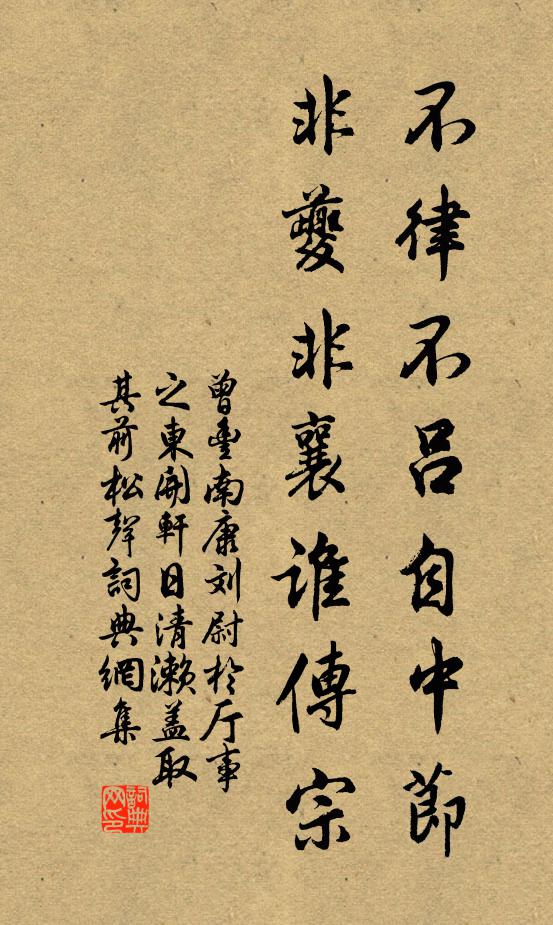 不律不吕自中節
非夔非襄誰傳宗
曾豊南康刘尉於厅事
之東開軒日清瀬蓋取
其前松聲詞典網集
詞典
网印